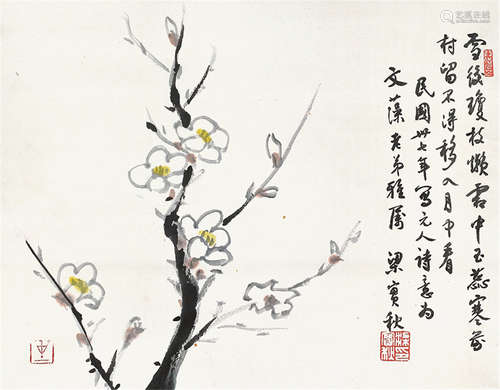 雪後瓊枝懶 霜中玉蕊寒 前
村留不得 移入月中看
民國卅七年寫元人詩意為
文藻老弟雅屬 梁實秋